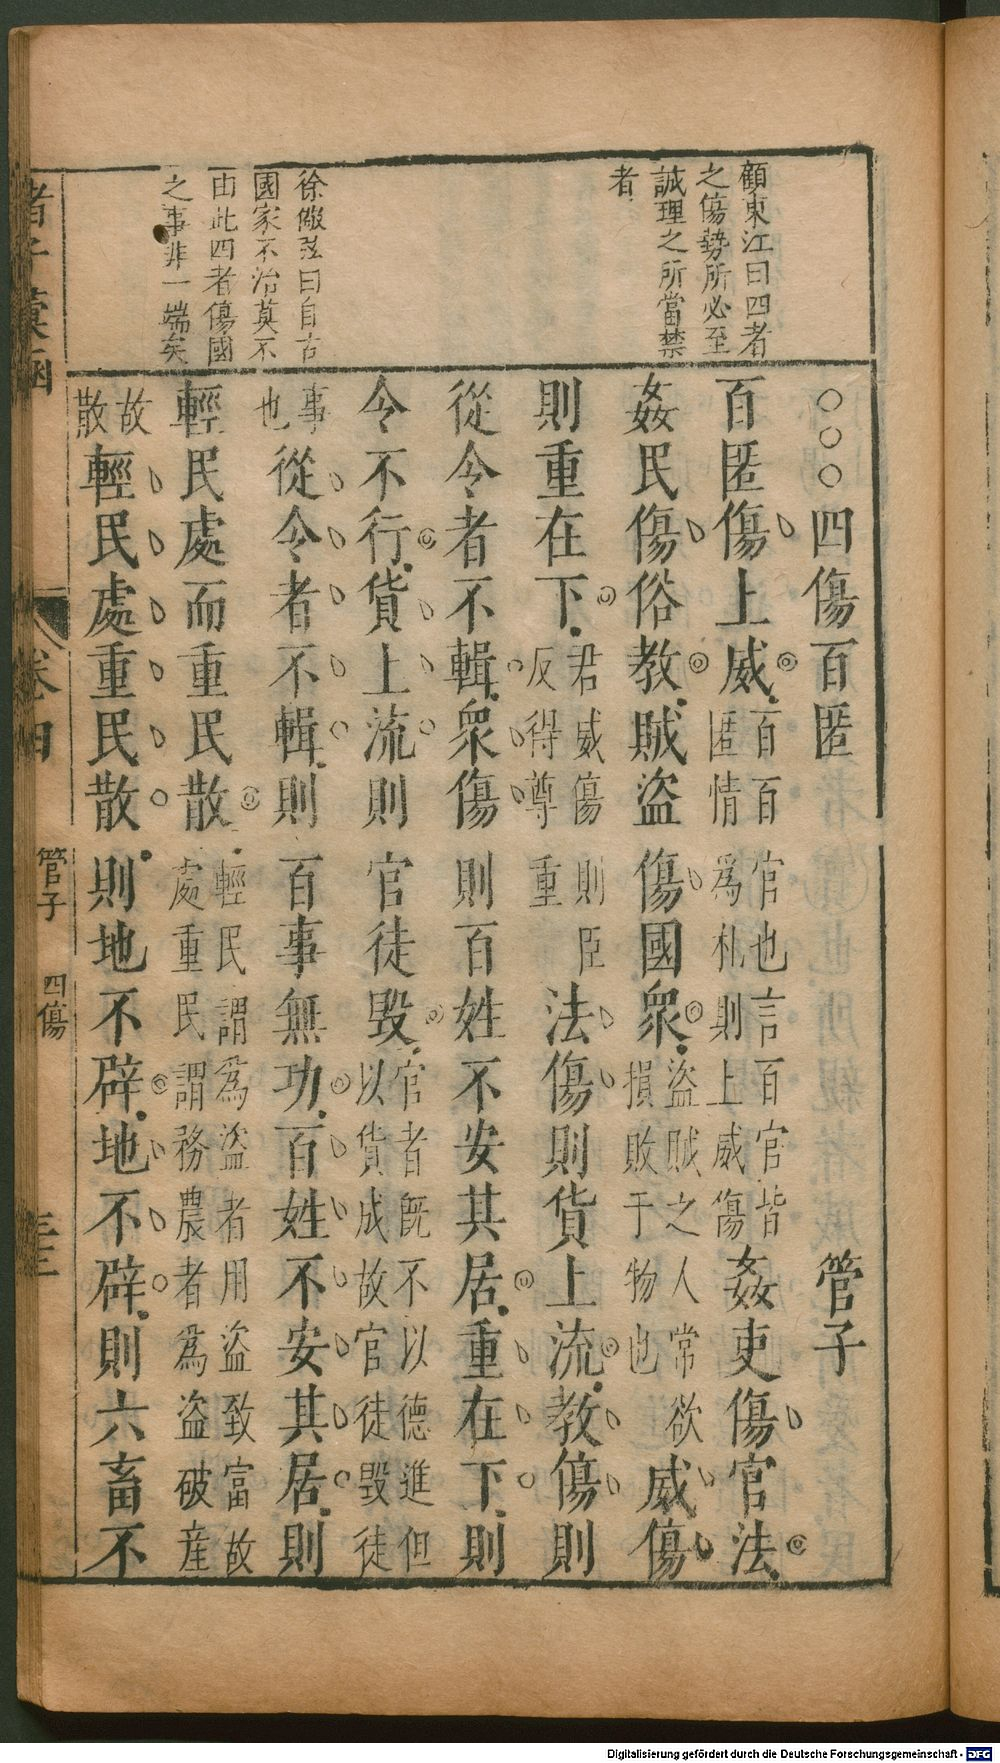 顧東江曰四者
之傷勢所必至
誠理之所當禁
者
徐儆弦曰自古
國家不治莫不
由此四者傷國
之事非一端矣
○○○四傷百匿 管子
百匿傷上威百百官也言百官皆匿情爲札則上威傷姦吏傷官法
姦民傷俗教賊盜傷國衆盜賊之人常欲損敗于物也威傷
則重在下君威傷則臣反得尊重法傷則貨上流教傷則
從令者不輯衆傷則百姓不安其居重在下則
令不行貨上流則官徒毀官者既不以德進但以貨成故官徒毀徒
事也從令者不輯則百事無功百姓不安其居則
輕民處而重民散輕民謂爲盜者用盜致富故處重民謂務農者爲盜破産
故散輕民處重民散則地不辟地不辟則六畜不
諸子彙函
卷四
管子 四傷
Digitalisierung gefördert durch die Deutsche Forschungsgemeinschaft - DFG